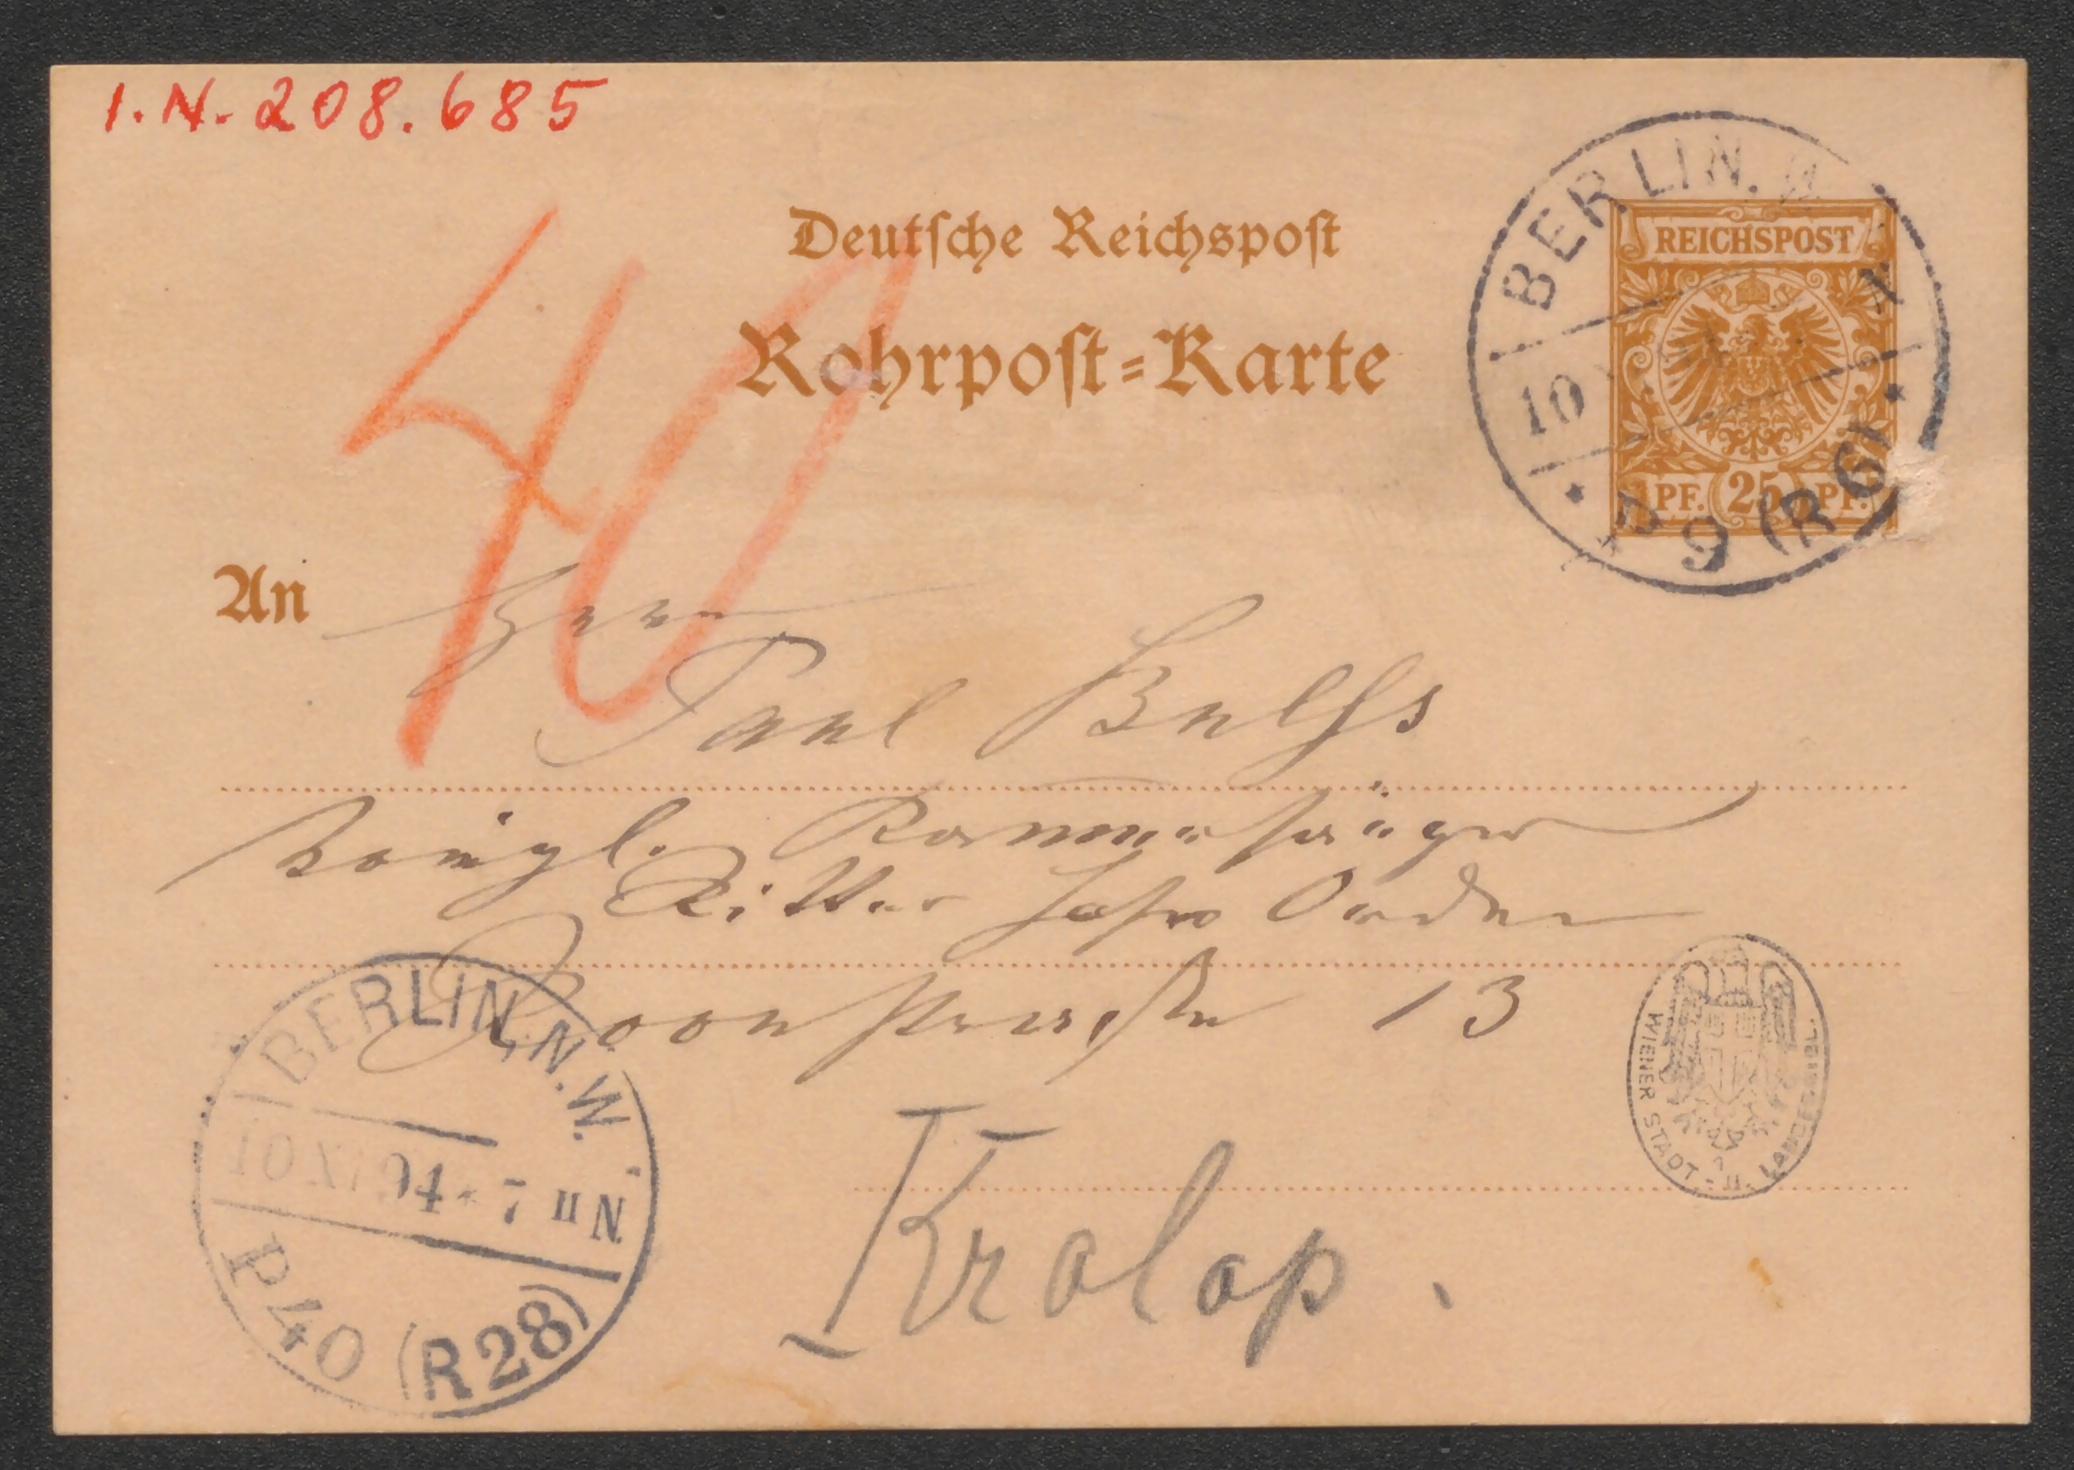 I.N. 208.685
Deutsche Reichspost
Rohrpost=Karte
40
BERLIN. W
10
* P 9 (R 6) *
REICHSPOST
PF. 25 PF.
An
Herrn
Paul Bulss
königl. Kammersänger
Ritter hoher Orden
Roonstrasse 13
BERLIN, N.W.
10 94 * 7 II N
P 40 (R 28)
WIENER STADT- U. LANDES
Krolop.